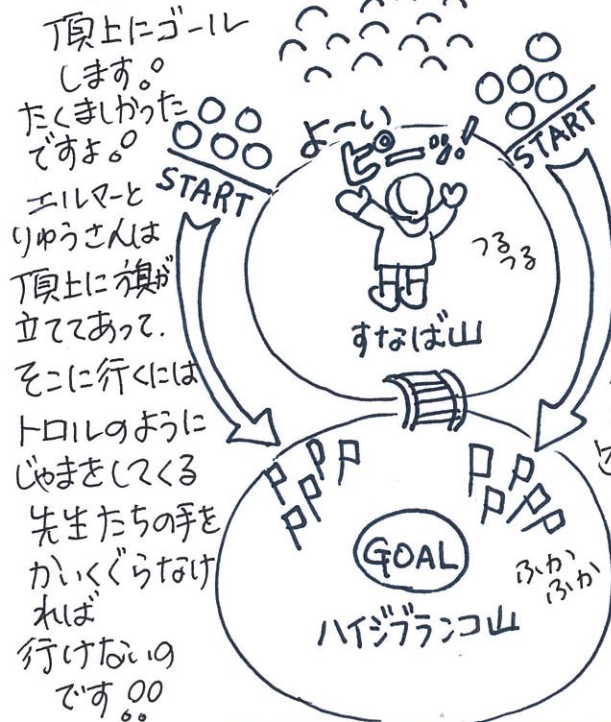 頂上にゴール
します。
たくましかった
ですよ。
エルマーと
りゅうさんは
頂上に旗が
立ててあって、
そこに行くには
トロルのように
じゃまをしてくる
先生たちの手を
かいくぐらなけ
れば
行けないの
です!!
START
よーい
ピーッ!
START
つる
つる
すなば山
GOAL
ふか
ふか
ハイジブランコ山